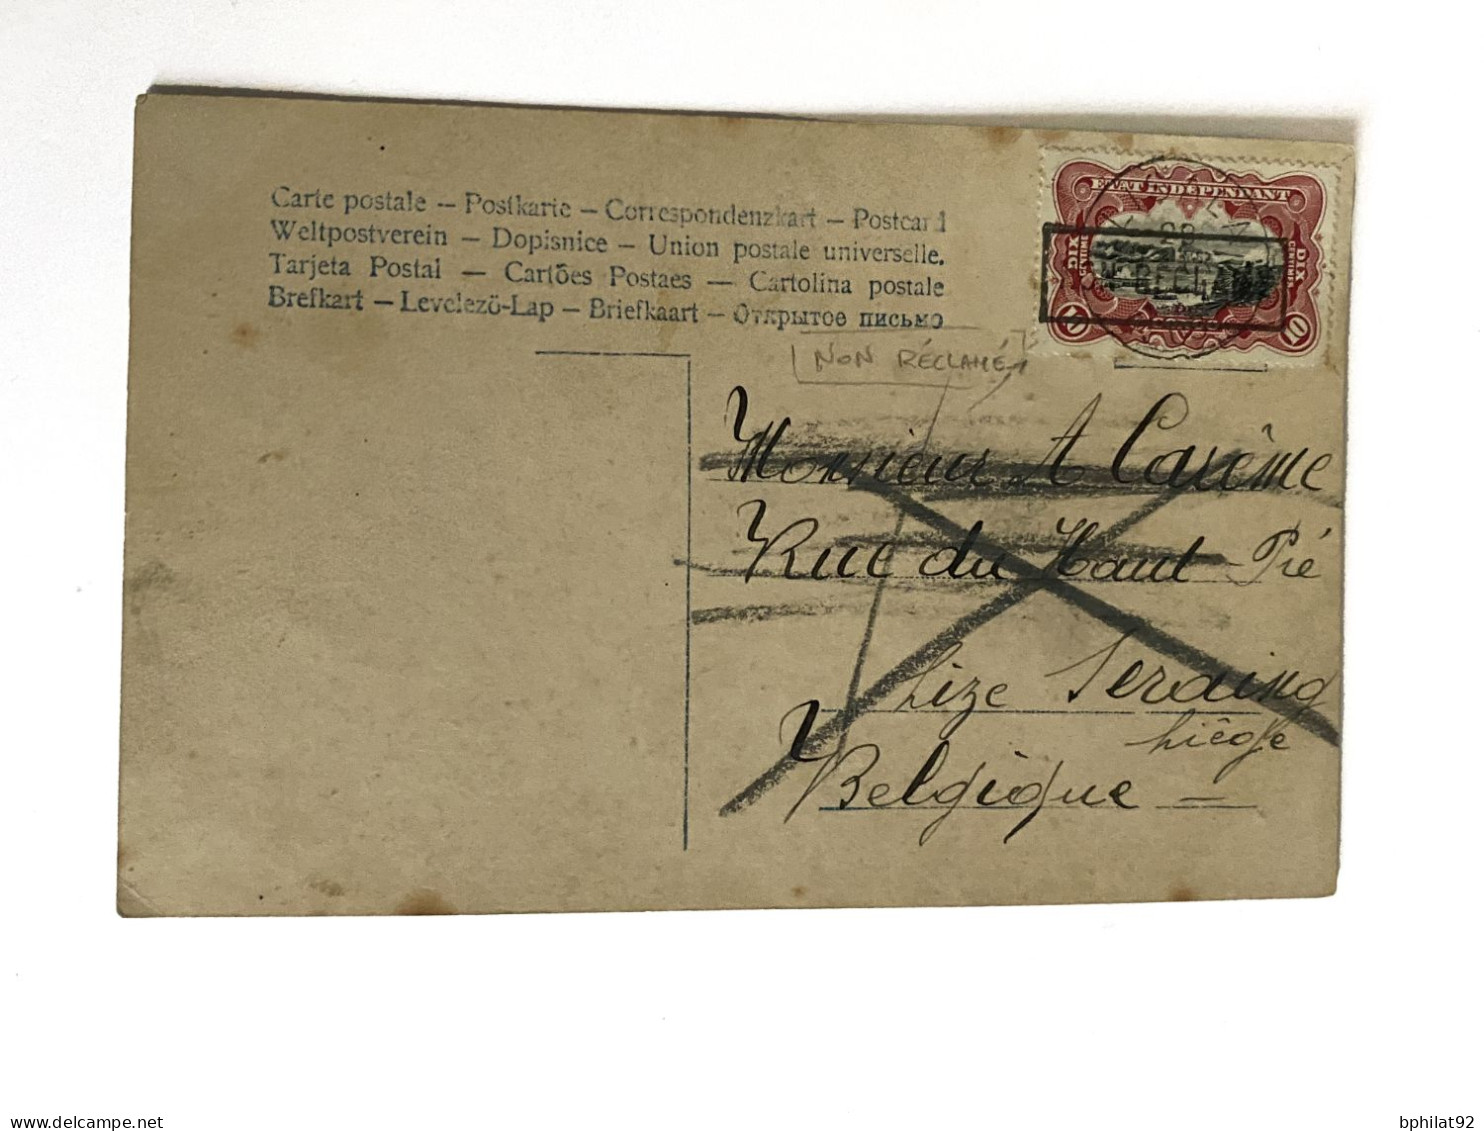 Carte postale – Postkarte – Correspondenzkart – Postcard
Weltpostverein – Dopisnice – Union postale universelle.
Tarjeta Postal — Cartões Postaes — Cartolina postale
Brefkart – Levelezö-Lap – Briefkaart – Открытое письмо
ETAT INDÉPENDANT
DIX
CENTIMES
DIX
CENTIMES
10
NON RÉCLAMÉ
Monsieur A Carême
Rue du Haut Pré
Lize Seraing
Liège
Belgique —
www.delcampe.net
bphilat92